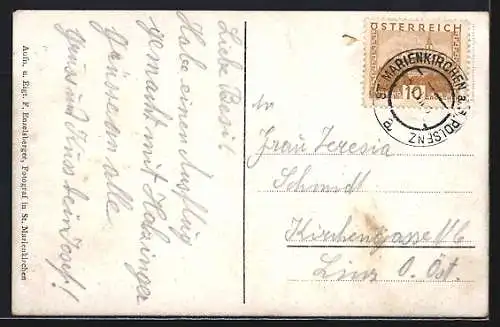 Aufn. u. Eigt. F. Enzelsberger, Fotograf in St. Marienkirchen
Liebe Resi!
Habe einen Ausflug
gemacht mit Hainzinger
Grüssen alle
Gruss und Kuss dein Josef!
ÖSTERREICH
10
ST. MARIENKIRCHEN a. d. POLSENZ
An
Frau Teresia
Schmidt
Kirchengasse 16
Linz O. Öst.